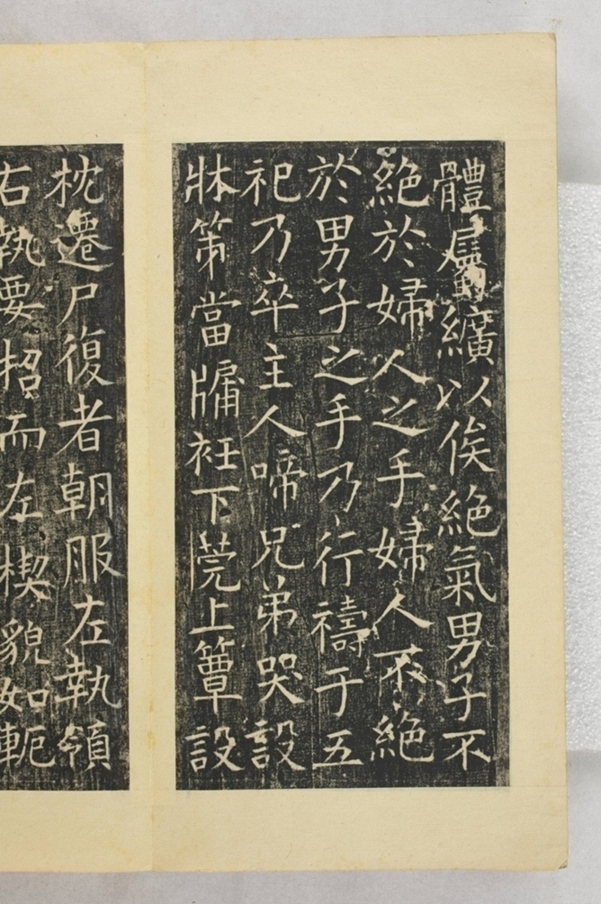 體屬纊以俟絶氣男子不
絶於婦人之手婦人不絶
於男子之手乃行禱于五
祀乃卒主人啼兄弟哭設
牀第當牖衽下莞上簟設
枕遷尸復者朝服左執領
右執要招而左楔貌如軛